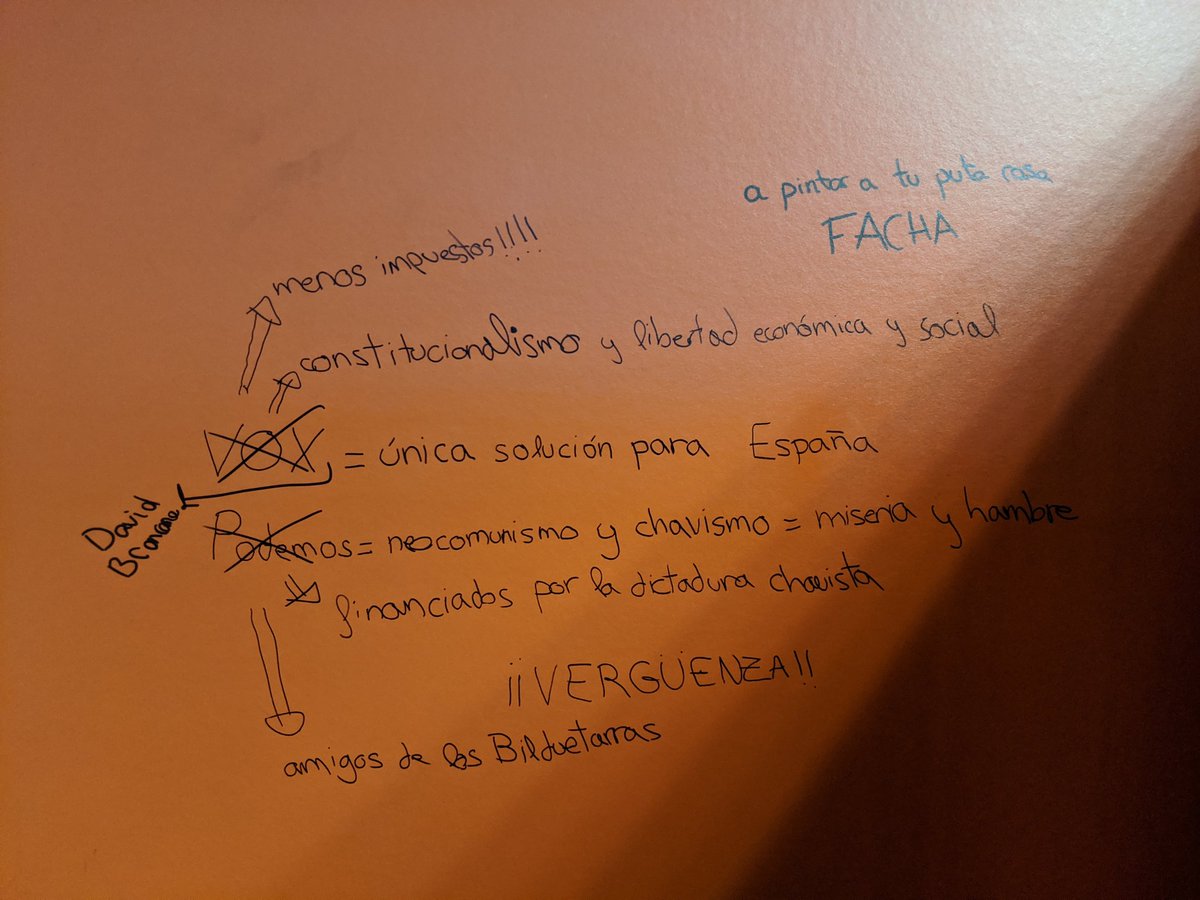 a pintar a tu puta casa
FACHA
menos impuestos!!!!
constitucionalismo y libertad económica y social
VOX = única solución para España
David
Broncano
Podemos = neocomunismo y chavismo = miseria y hambre
financiados por la dictadura chavista
¡¡VERGÜENZA!!
amigos de los Bilduetarras